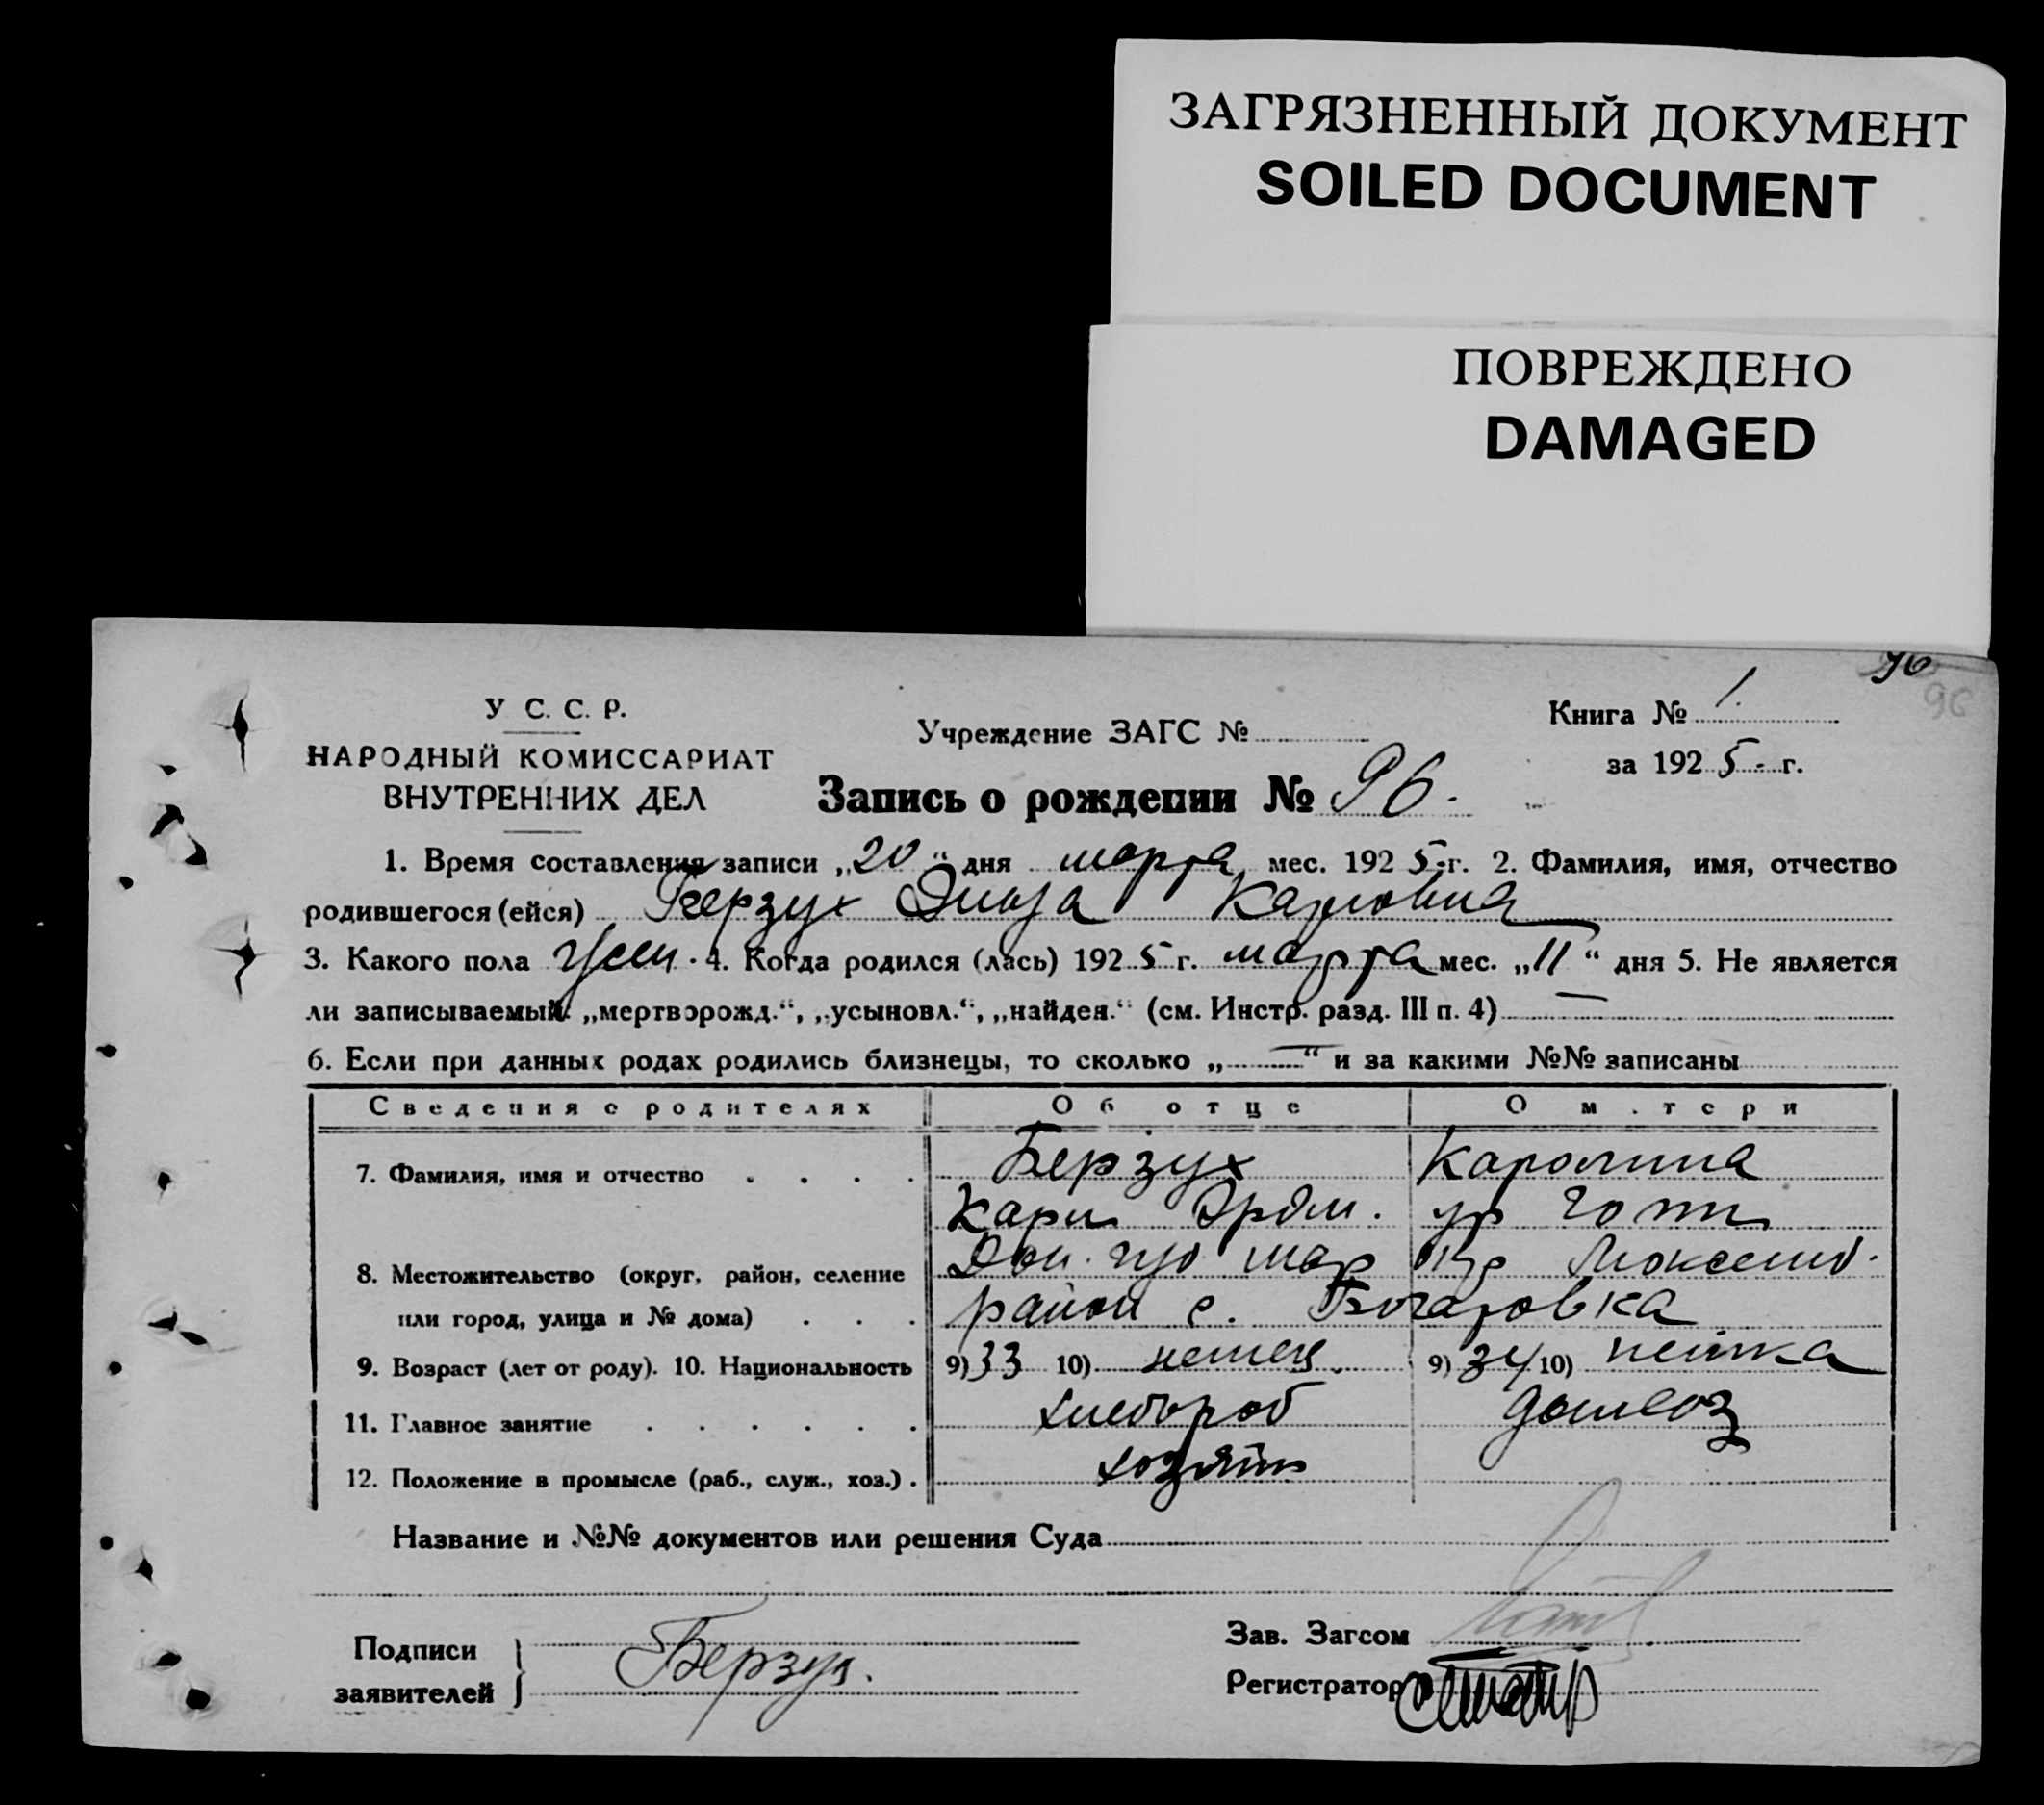 ЗАГРЯЗНЕННЫЙ ДОКУМЕНТ
SOILED DOCUMENT
ПОВРЕЖДЕНО
DAMAGED
96
96
У С. С. Р.
НАРОДНЫЙ КОМИССАРИАТ
ВНУТРЕННИХ ДЕЛ
Учреждение ЗАГС №
Книга № 1.
за 1925 г.
Запись о рождении № 96.
1. Время составления записи „20“ дня марта мес. 1925 г. 2. Фамилия, имя, отчество
родившегося (ейся) Берзух Эльза Карловна
3. Какого пола жен. 4. Когда родился (лась) 1925 г. марта мес. „11“ дня 5. Не является
ли записываемый „мертворожд.“, „усыновл.“, „найден.“ (см. Инстр. разд. III п. 4) —
6. Если при данных родах родились близнецы, то сколько „—“ и за какими №№ записаны
Сведения о родителях Об отце О матери
7. Фамилия, имя и отчество . . . . Берзух Каролина
Карл Эрдм. ур Готт
8. Местожительство (округ, район, селение Дон. губ мар окр
или город, улица и № дома) . . . район с.
9. Возраст (лет от роду). 10. Национальность 9) 33 10) немец. 9) 34 10) немка
11. Главное занятие . . . . . . хлебороб домхоз
12. Положение в промысле (раб., служ., хоз.) . хозяин
Название и №№ документов или решения Суда
Подписи
заявителей } Берзух.
Зав. Загсом
Регистратор